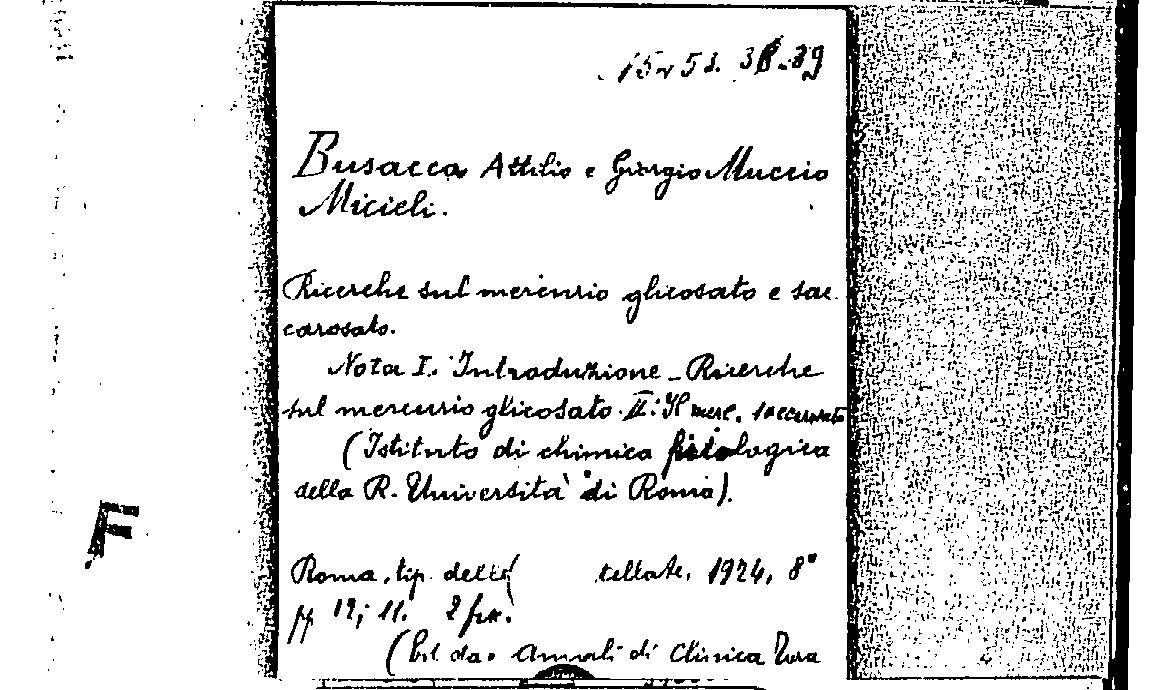 Busacca Attilio e Giorgio Muccio
Micieli.
Ricerche sul mercurio glicosato e sac
carosato.
Nota I. Introduzione - Ricerche
sul mercurio glicosato. II: Il merc. saccarosato
(Istituto di chimica fisiologica
della R. Università di Roma).
F
Roma, tip. delle tellate, 1924, 8°
pp 12; 11. 2 fsc.
da: Annali di Clinica